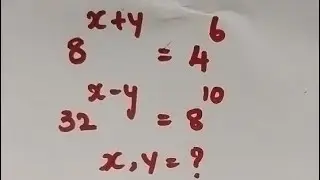 8^(x+y) = 4^6
32^(x-y) = 8^10
x, y = ?